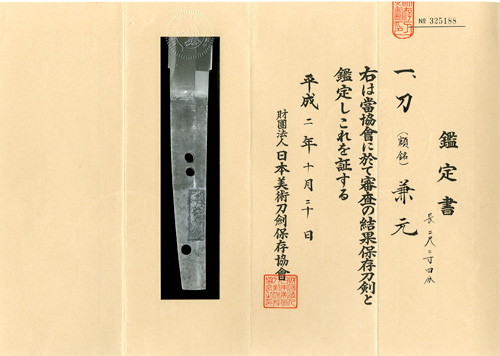 № 325188
鑑定書
一、刀 (額銘) 兼元
長 二尺二寸四分
右は當協會に於て審査の結果保存刀剣と
鑑定しこれを証する
平成二年十月二十日
財團法人 日本美術刀剣保存協會